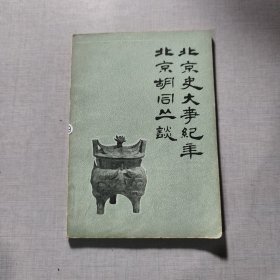 北京史大事纪年
北京胡同丛谈